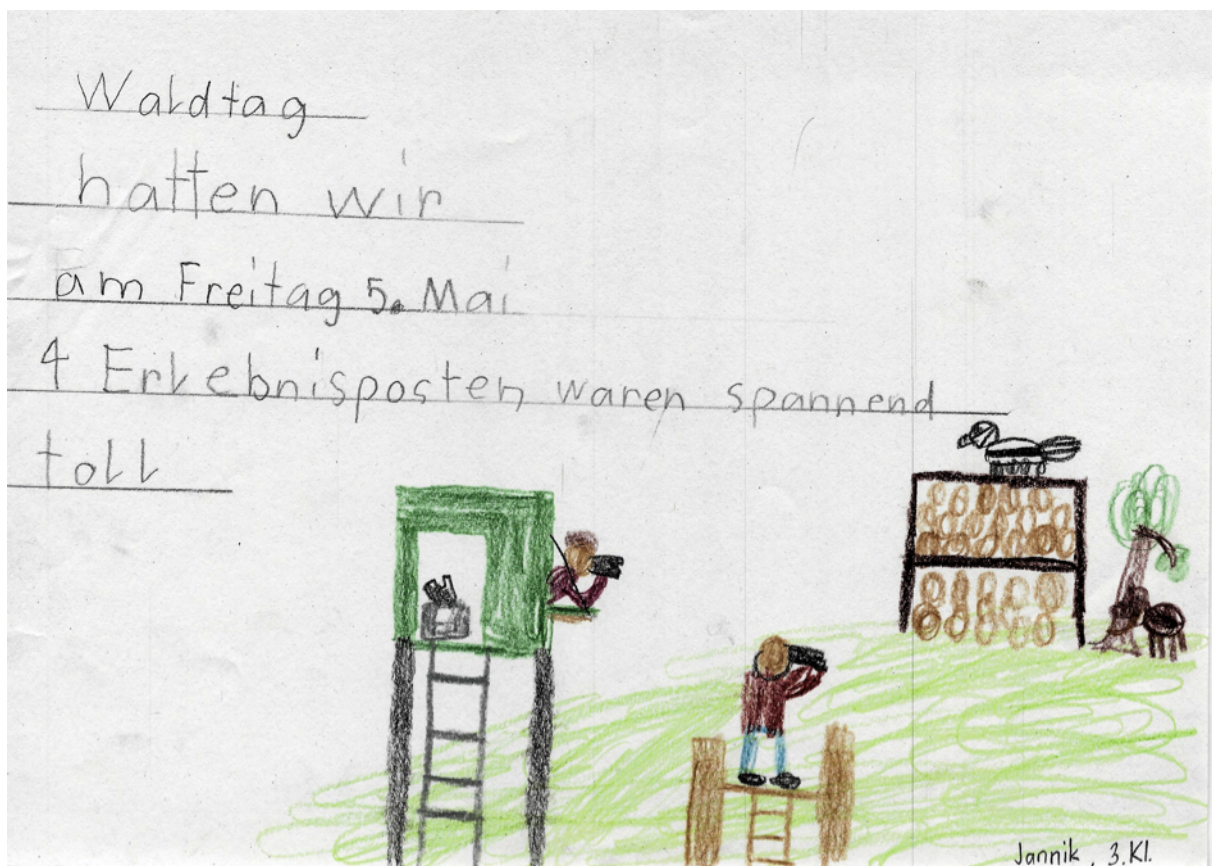 Waldtag
hatten wir
am Freitag 5. Mai
4 Erlebnisposten waren spannend
toll
Jannik, 3. Kl.